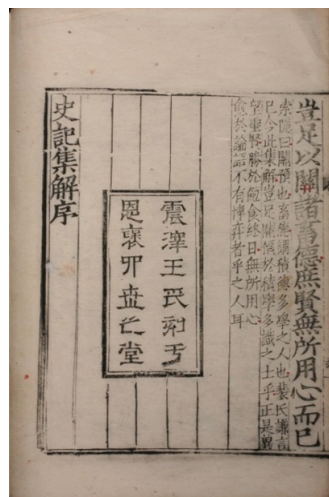 豈足以關諸畜德庶賢無所用心而已
索隱曰關預也畜德謂積德多學之人也裴氏謙言
已今此集解豈足關預於積學多識之士乎正是冀
望聖賢勝於飽食終日無所用心
愈於論語不有博弈者乎之人耳
震澤王氏刻于
恩褒四世之堂
史記集解序